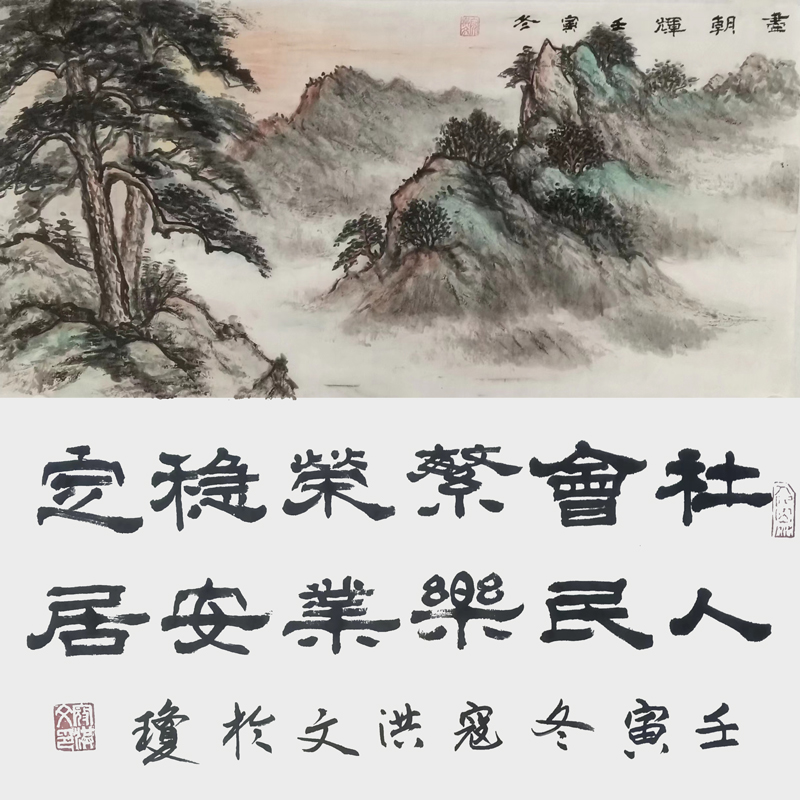 盡朝輝壬寅冬
社會繁榮稳定
人民樂業安居
壬寅冬寇洪文於瓊